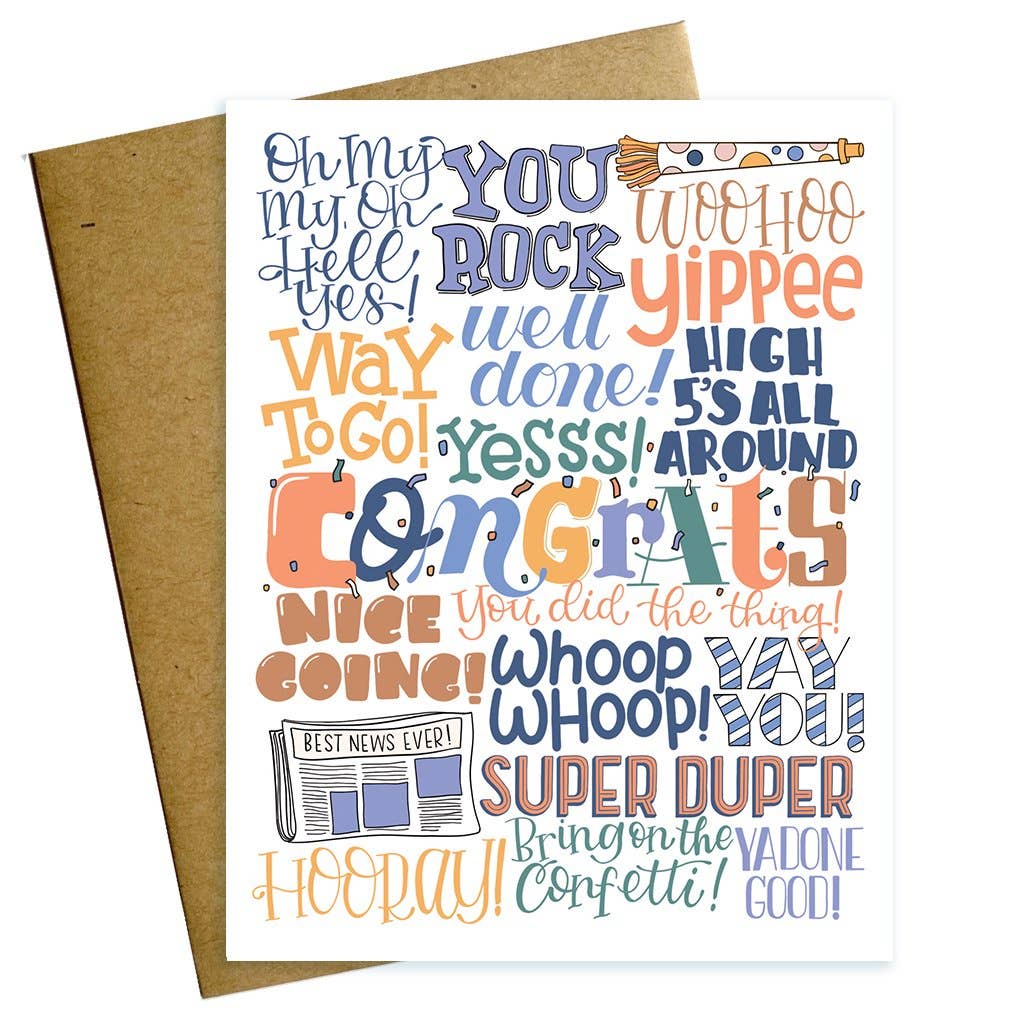 Oh My
My, Oh
Hell
Yes!
YOU
ROCK
WOOHOO
yippee
WAY
TO GO!
well
done!
HIGH
5'S ALL
AROUND
Yesss!
CONGRATS
NICE
GOING!
You did the thing!
Whoop
WHOOP!
YAY
YOU!
BEST NEWS EVER!
SUPER DUPER
HOORAY!
Bring on the
Confetti!
YA DONE
GOOD!